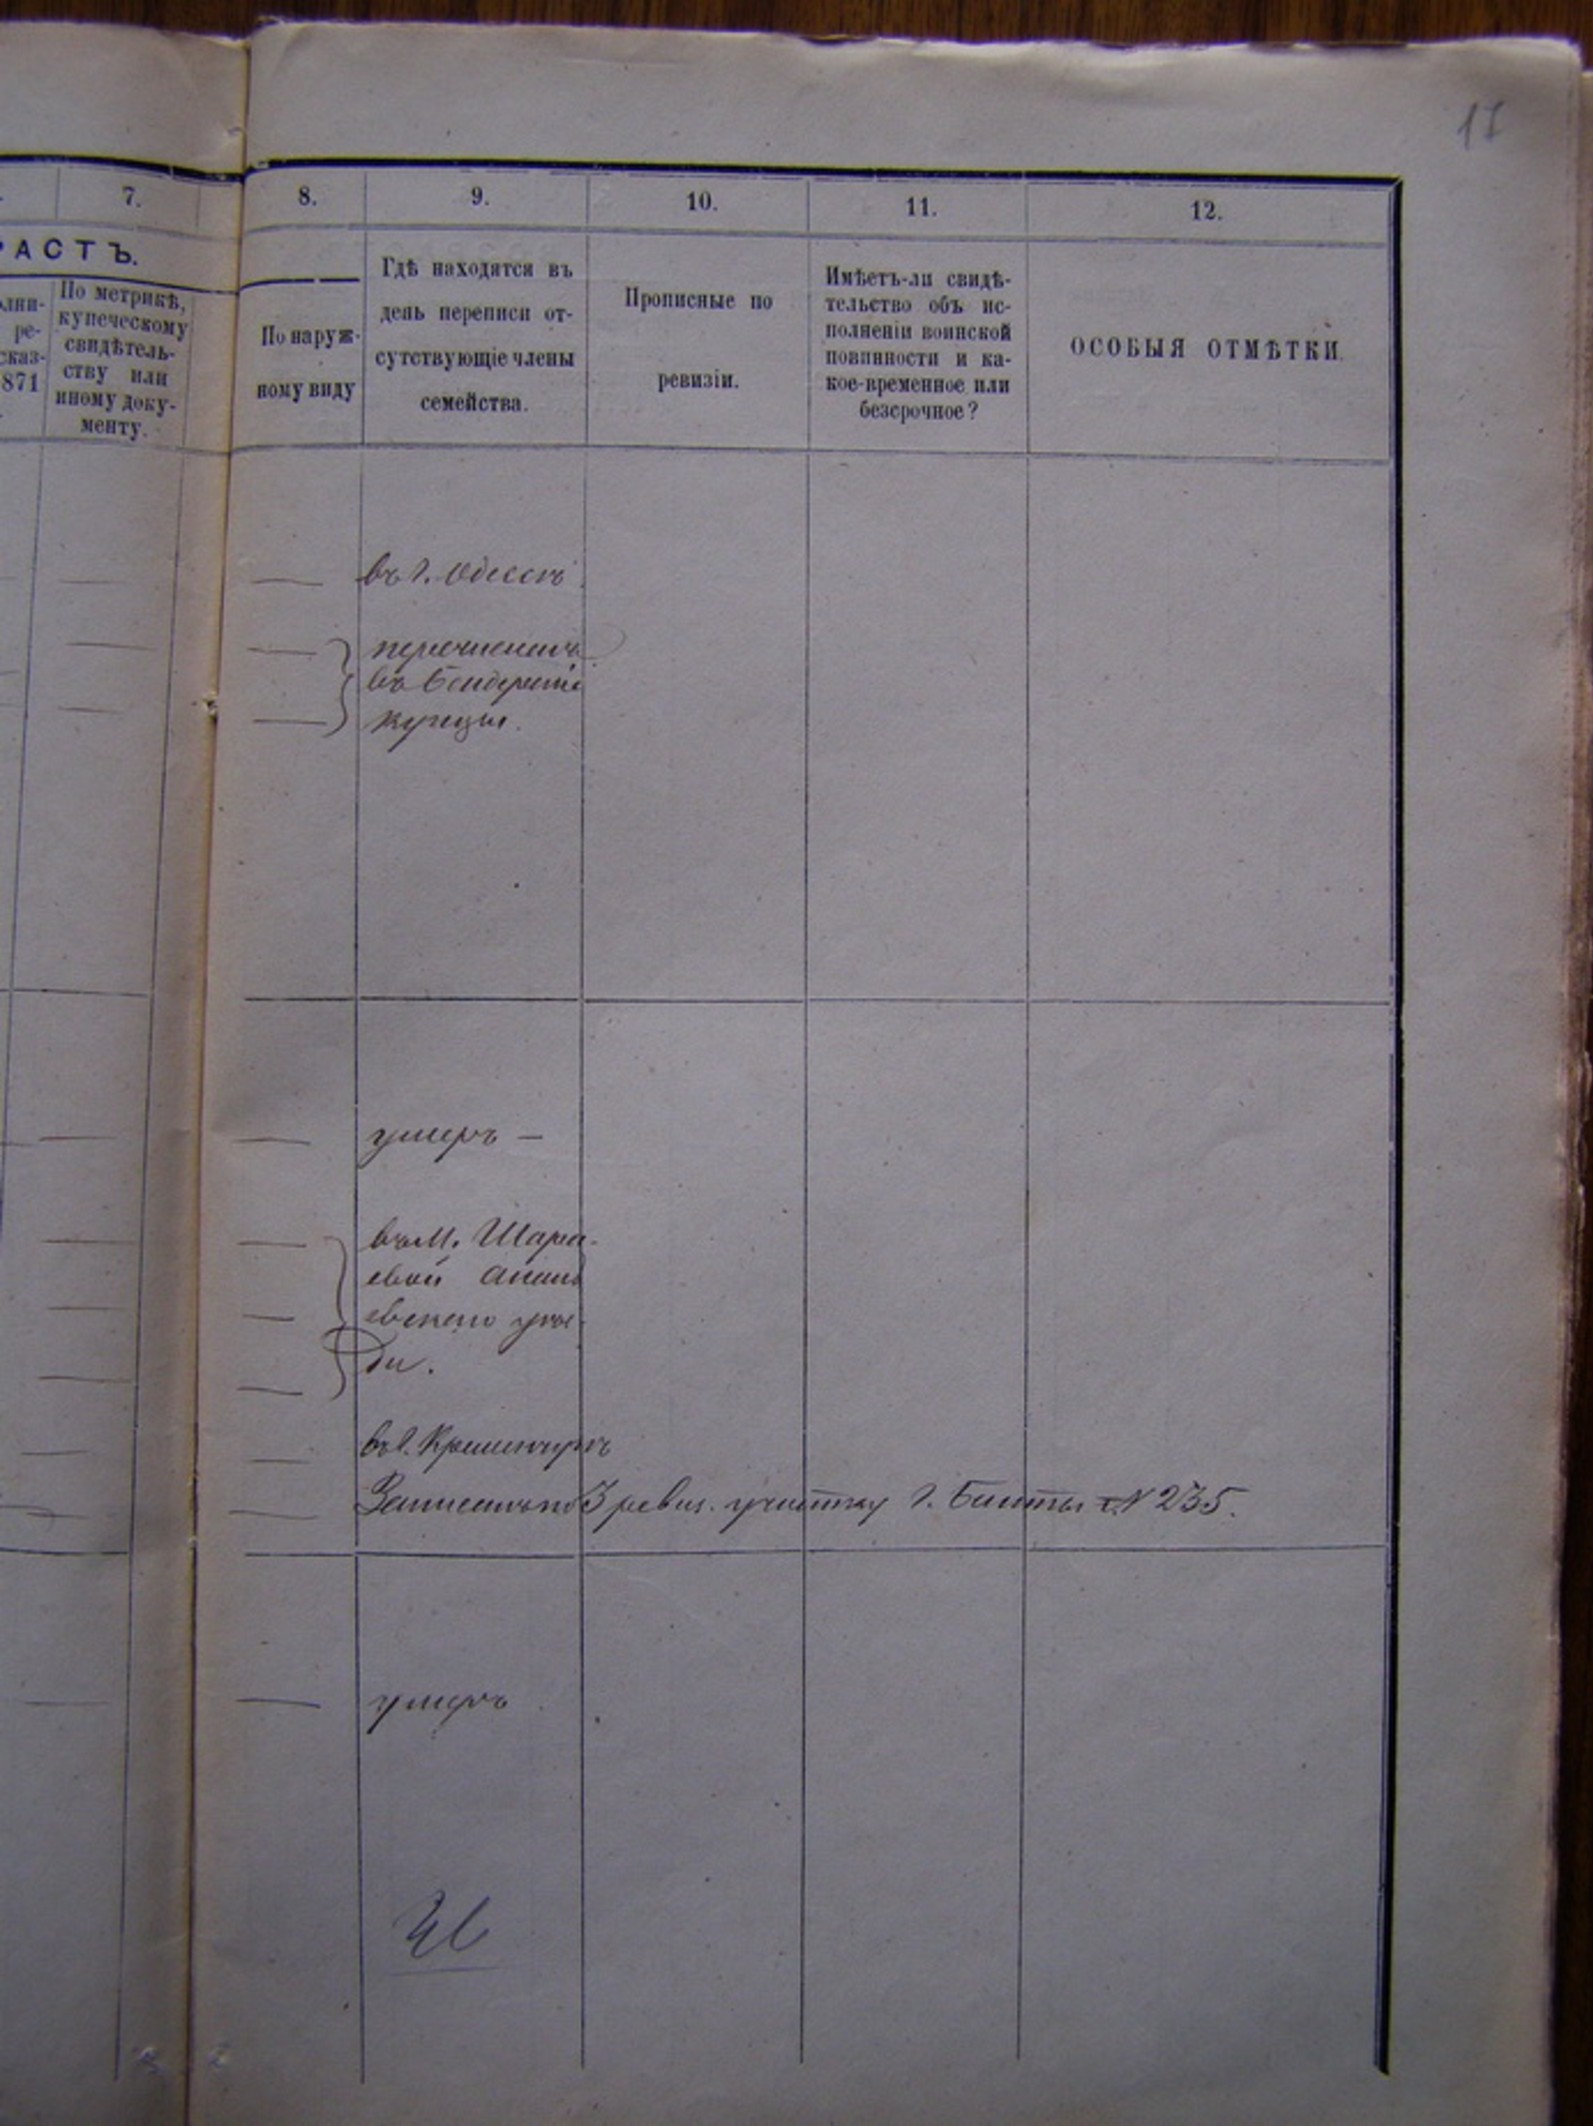 17
7.
8.
9.
10.
11.
12.
РАСТЪ.
По метрикѣ,
купеческому
свидѣтель-
ству или
иному доку-
менту.
лни-
ре-
сказ-
871
По наруж-
ному виду
Гдѣ находятся въ
день переписи от-
сутствующіе члены
семейства.
Прописные по
ревизіи.
Имѣетъ-ли свидѣ-
тельство объ ис-
полненіи воинской
повинности и ка-
кое-временное или
безсрочное?
ОСОБЫЯ ОТМѢТКИ.
въ г. Одессѣ
перечисленъ
въ Бендерскіе
купцы.
умеръ —
въ м. Шара-
евой Анань
евскаго уѣз-
да.
въ г. Кременчугѣ
Записанъ по 3 ревиз. участку г. Балты № 235.
умеръ